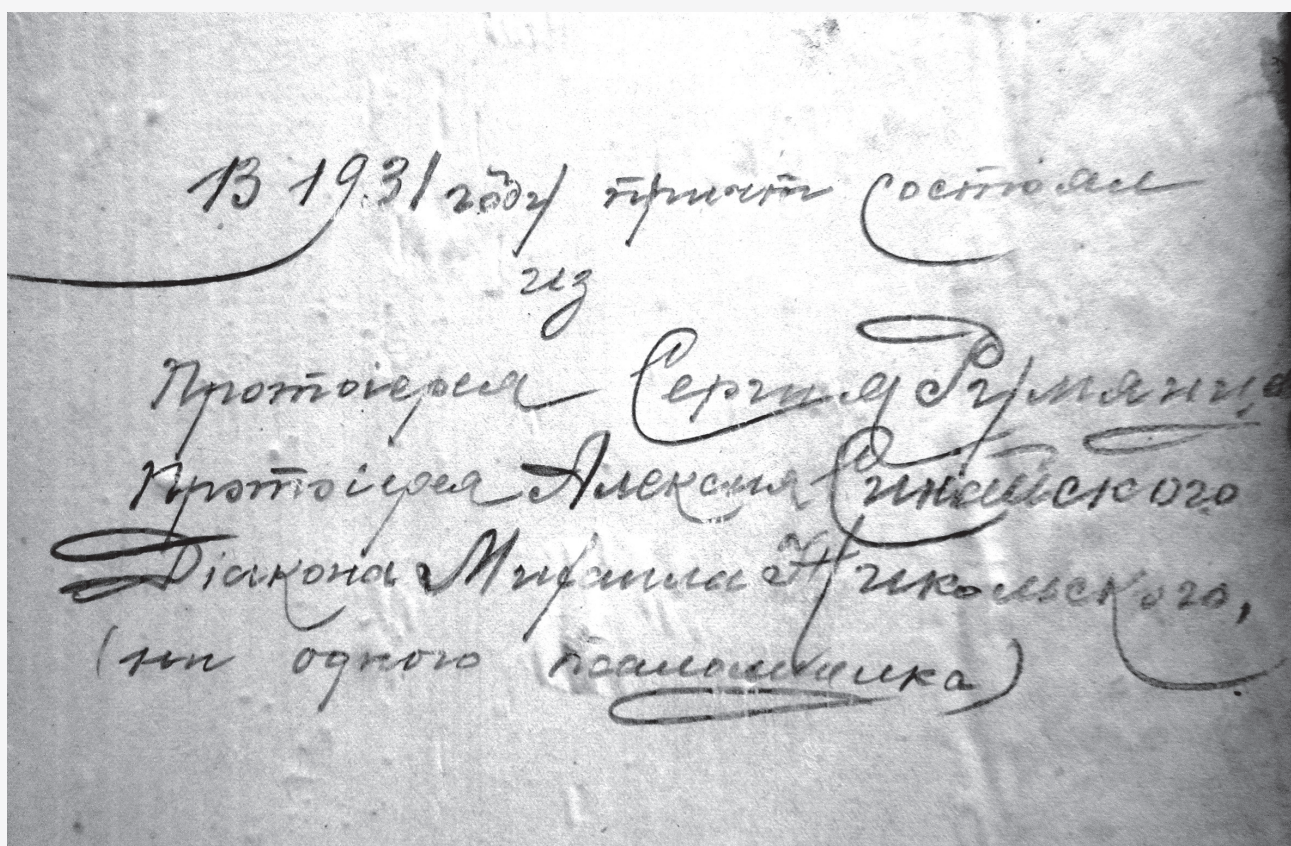 В 1931 году причт состоял
из
Протоіерея Сергия Румянце
Протоіерея Алексия Синайского
Діакона Михаила Никольского,
(ни одного псаломщика)